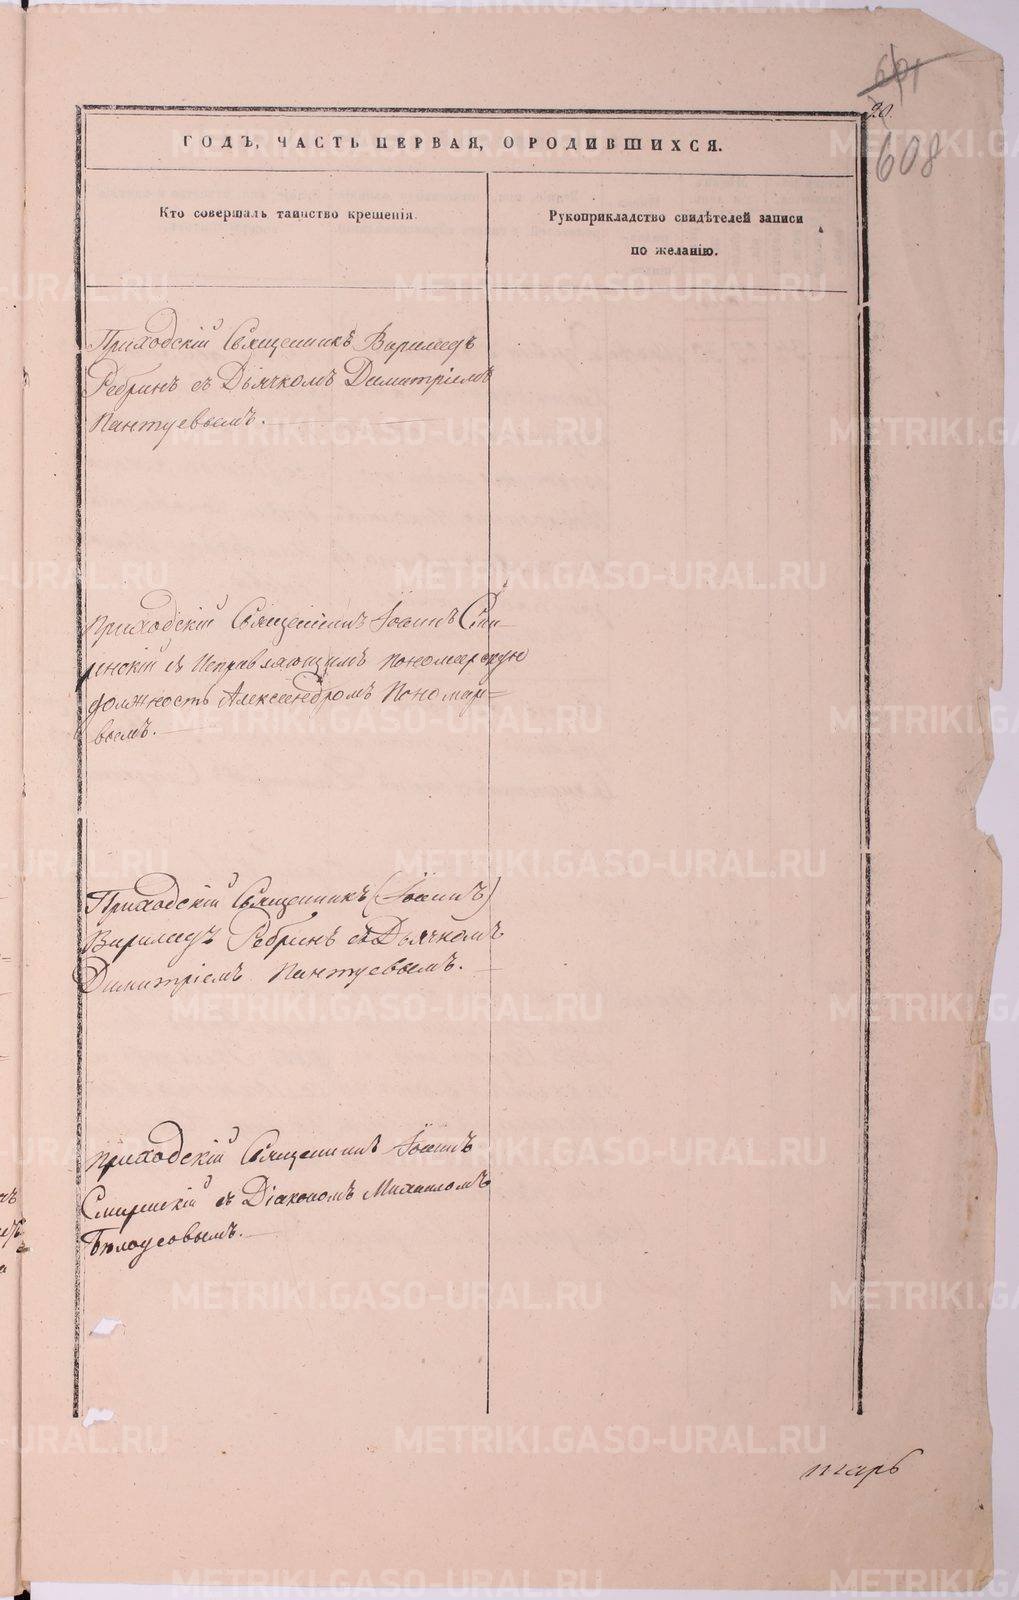 601
20.
608
ГОДЪ, ЧАСТЬ ПЕРВАЯ, О РОДИВШИХСЯ.
Кто совершалъ таинство крещенія.
Рукоприкладство свидѣтелей записи
по желанію.
Приходскій Священникъ Варилад
Ребринъ съ Дьячкомъ Димитріемъ
Пантуевымъ.
Приходскій Священникъ Іоаннъ Сми-
ренскій съ Исправляющимъ пономарскую
должность Александромъ Пономар-
вымъ.
Приходскій Священникъ (Іоаннъ)
Вариладъ Ребринъ съ Дьячкомъ
Димитріемъ Пантуевымъ.
Приходскій Священникъ Іоаннъ
Смиренскій съ Діакономъ Михаиломъ
Бѣлоусовымъ.
METRIKI.GASO-URAL.RU